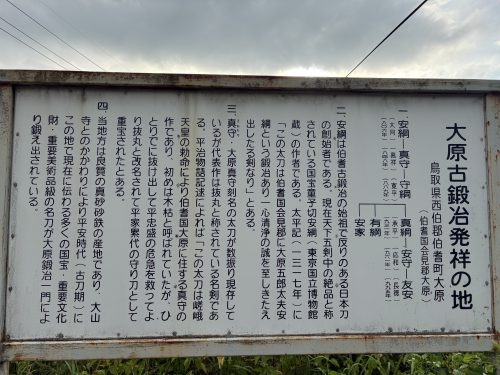 大原古鍛冶発祥の地
鳥取県西伯郡伯耆町大原
(伯耆国会見郡大原)
一 安綱―真守―守綱
真綱―安守―友安
有綱
安家
二、安綱は伯耆古鍛冶の始祖で反りのある日本刀
の創始者である。現在天下五剣中の絶品と称
されている国宝童子切安綱(東京国立博物館
蔵)の作者である。太平記(一三七年)に
「この太刀は伯耆国会見郡に大原五郎太夫安
綱という鍛冶あり一心清浄の誠を至しきたえ
出したる剣なり」とある。
三 真守・大原真守刻名の太刀が数振り現存して
いるが代表作は抜丸と称されている名剣であ
る。平治物語記述によれば「この太刀は嵯峨
天皇の勅命により伯耆国大原に住する真守の
作であり、初めは木枯と呼ばれていたが、ひ
とりでに抜け出して平忠盛の危急を救ってよ
り抜丸と改名されて平家累代の守り刀として
重宝されたとある。
四 当地方は良質の真砂砂鉄の産地であり、大山
寺とのかかわりにより平安時代(古刀期)に
この地で現在に伝わる多くの国宝・重要文化
財・重要美術品級の名刀が大原鍛冶一門によ
り鍛え出されている。